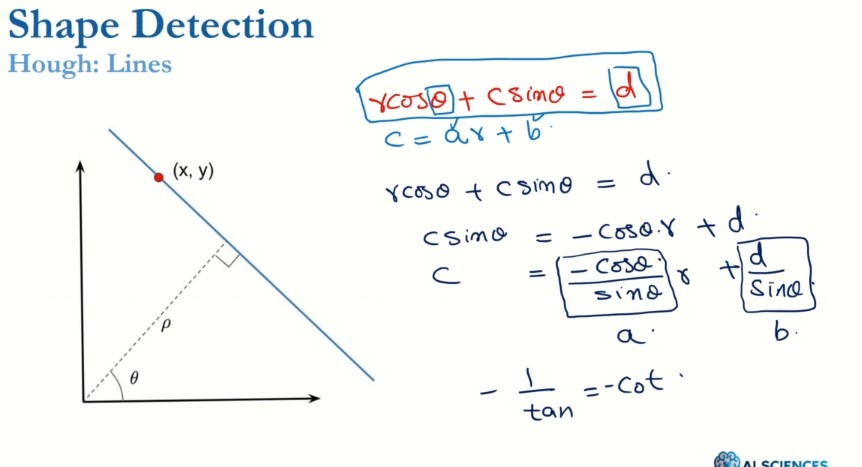 Shape Detection
Hough: Lines
rcosθ + csinθ = d
c = ar + b.
(x, y)
rcosθ + csinθ = d.
csinθ = -cosθ.r + d.
c = -cosθ./sinθ r + d/sinθ
a. b.
ρ
θ
- 1/tan = -cot.
AI SCIENCES